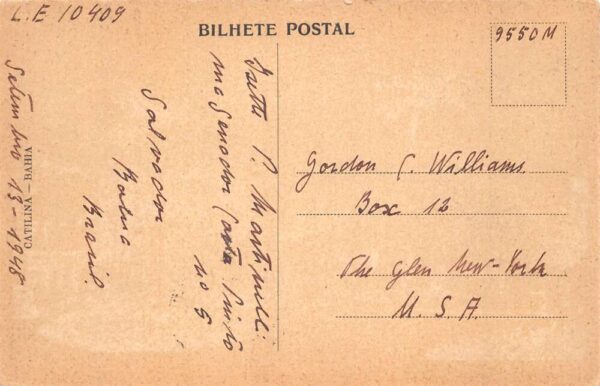 L.E 10409
BILHETE POSTAL
9550M
P. Martinelli
Senador Costa Pinto
no 5
Salvador
Bahia
Brasil.
Setembro 13-1948
CATILINA — BAHIA
Gordon C. Williams
Box 12
The Glen New-York
U. S. A.